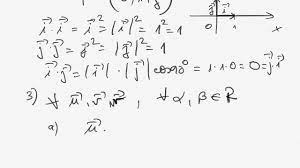 i⃗·i⃗ = i⃗² = |i⃗|² = 1² = 1
j⃗·j⃗ = j⃗² = |j⃗|² = 1
i⃗·j⃗ = |i⃗|·|j⃗| cos90° = 1·1·0 = 0 = j⃗·i⃗
0 i⃗ x
3) ∀ u⃗, v⃗, w⃗, ∀ α, β ∈ R
a) u⃗.